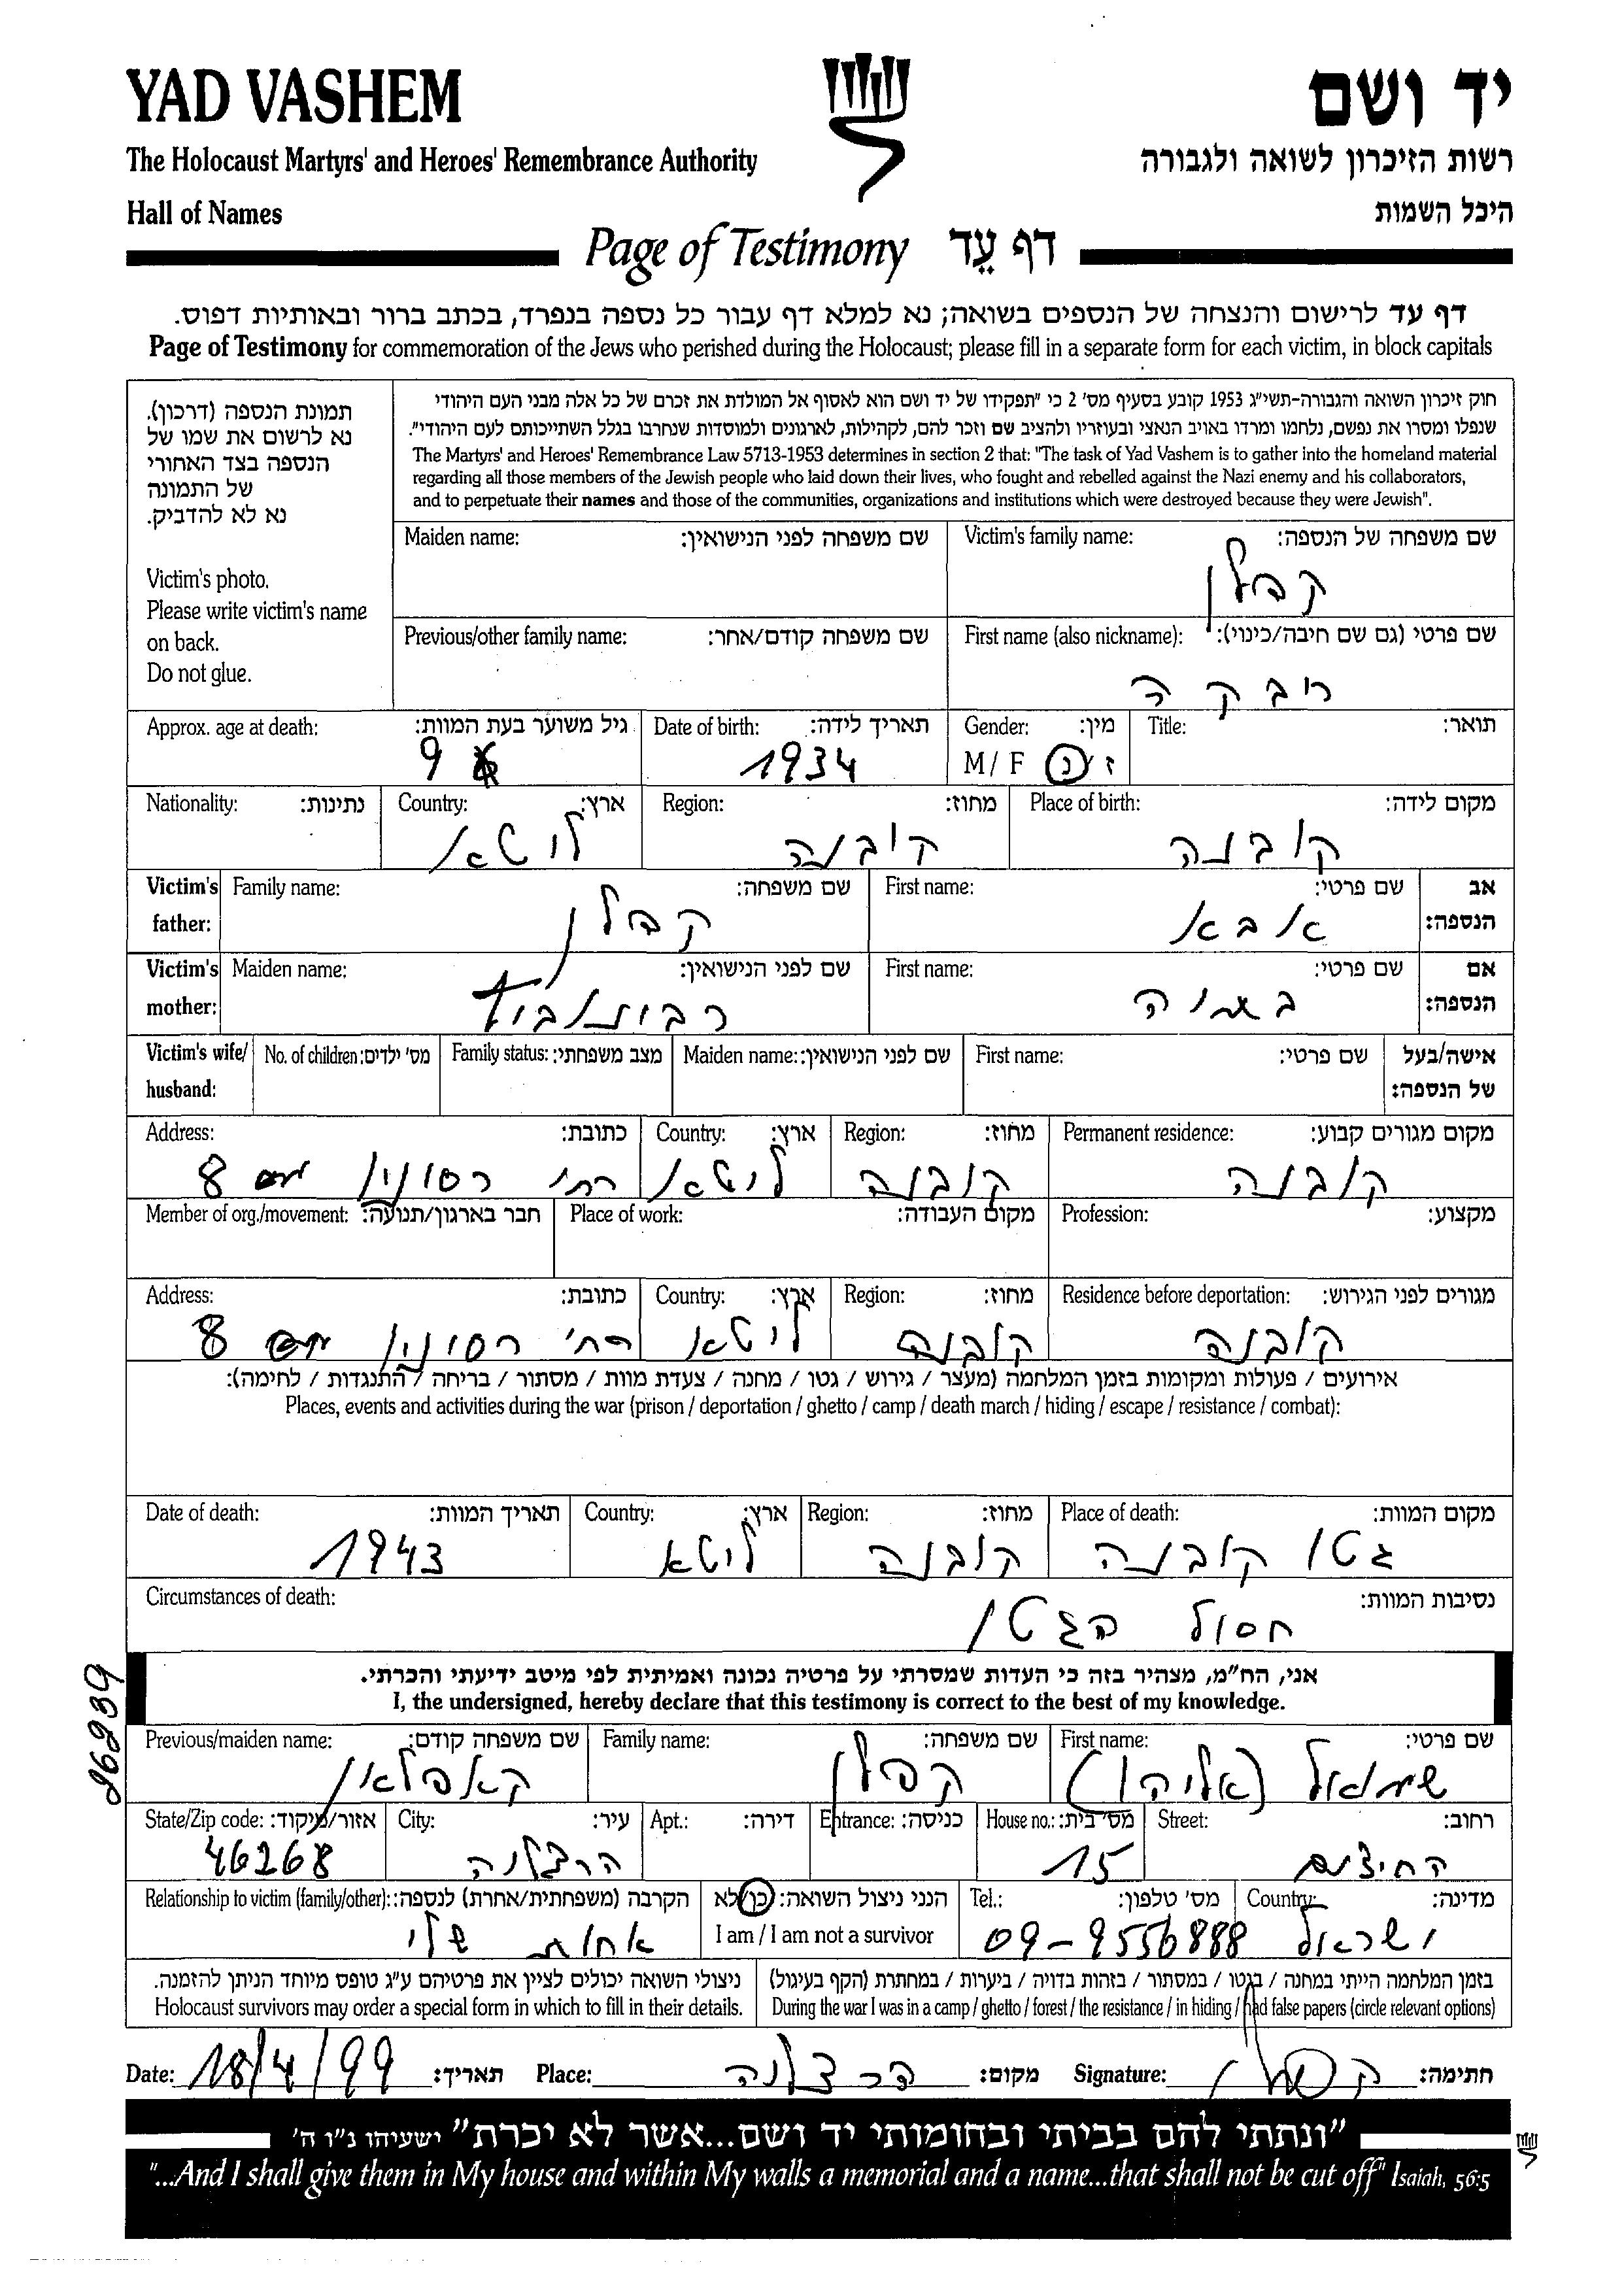 YAD VASHEM
יד ושם
The Holocaust Martyrs' and Heroes' Remembrance Authority
רשות הזיכרון לשואה ולגבורה
Hall of Names
היכל השמות
Page of Testimony דף עֵד
דף עד לרישום והנצחה של הנספים בשואה; נא למלא דף עבור כל נספה בנפרד, בכתב ברור ובאותיות דפוס.
Page of Testimony for commemoration of the Jews who perished during the Holocaust; please fill in a separate form for each victim, in block capitals
תמונת הנספה (דרכון).
נא לרשום את שמו של
הנספה בצד האחורי
של התמונה
נא לא להדביק.
Victim's photo.
Please write victim's name
on back.
Do not glue.
חוק זיכרון השואה והגבורה-תשי"ג 1953 קובע בסעיף מס' 2 כי "תפקידו של יד ושם הוא לאסוף אל המולדת את זכרם של כל אלה מבני העם היהודי
שנפלו ומסרו את נפשם, נלחמו ומרדו באויב הנאצי ובעוזריו ולהציב שם וזכר להם, לקהילות, לארגונים ולמוסדות שנחרבו בגלל השתייכותם לעם היהודי".
The Martyrs' and Heroes' Remembrance Law 5713-1953 determines in section 2 that: "The task of Yad Vashem is to gather into the homeland material
regarding all those members of the Jewish people who laid down their lives, who fought and rebelled against the Nazi enemy and his collaborators,
and to perpetuate their names and those of the communities, organizations and institutions which were destroyed because they were Jewish".
Victim's family name: שם משפחה של הנספה:
קפלן
Maiden name: שם משפחה לפני הנישואין:
First name (also nickname): שם פרטי (גם שם חיבה/כינוי):
רבקה
Previous/other family name: שם משפחה קודם/אחר:
Title: תואר:
Gender: מין:
M / F ז / נ
Date of birth: תאריך לידה:
1934
Approx. age at death: גיל משוער בעת המוות:
9
Place of birth: מקום לידה:
קובנה
Region: מחוז:
קובנה
Country: ארץ:
ליטא
Nationality: נתינות:
Victim's father: אב הנספה:
First name: שם פרטי:
אבא
Family name: שם משפחה:
קפלן
Victim's mother: אם הנספה:
First name: שם פרטי:
Maiden name: שם לפני הנישואין:
רבינוביץ
Victim's wife/ husband: אישה/בעל של הנספה:
First name: שם פרטי:
Maiden name: שם לפני הנישואין:
Family status: מצב משפחתי:
No. of children: מס' ילדים:
Permanent residence: מקום מגורים קבוע:
קובנה
Region: מחוז:
קובנה
Country: ארץ:
ליטא
Address: כתובת:
רח' 8
Profession: מקצוע:
Place of work: מקום העבודה:
Member of org./movement: חבר בארגון/תנועה:
Residence before deportation: מגורים לפני הגירוש:
קובנה
Region: מחוז:
קובנה
Country: ארץ:
ליטא
Address: כתובת:
רח' 8
אירועים / פעולות ומקומות בזמן המלחמה (מעצר / גירוש / גטו / מחנה / צעדת מוות / מסתור / בריחה / התנגדות / לחימה):
Places, events and activities during the war (prison / deportation / ghetto / camp / death march / hiding / escape / resistance / combat):
Place of death: מקום המוות:
גטו קובנה
Region: מחוז:
קובנה
Country: ארץ:
ליטא
Date of death: תאריך המוות:
1943
Circumstances of death: נסיבות המוות:
חסול הגטו
אני, הח"מ, מצהיר בזה כי העדות שמסרתי על פרטיה נכונה ואמיתית לפי מיטב ידיעתי והכרתי.
I, the undersigned, hereby declare that this testimony is correct to the best of my knowledge.
First name: שם פרטי:
שמואל (אליהו)
Family name: שם משפחה:
קפלן
Previous/maiden name: שם משפחה קודם:
קאפלאן
Street: רחוב:
House no.: מס' בית:
15
Entrance: כניסה:
Apt.: דירה:
City: עיר:
הרצליה
State/Zip code: אזור/מיקוד:
46268
Country: מדינה:
ישראל
Tel.: מס' טלפון:
09-9556888
הנני ניצול השואה: כן/לא
I am / I am not a survivor
Relationship to victim (family/other): הקרבה (משפחתית/אחרת) לנספה:
אחות שלי
בזמן המלחמה הייתי במחנה / בגטו / במסתור / בזהות בדויה / ביערות / במחתרת (הקף בעיגול)
During the war I was in a camp / ghetto / forest / the resistance / in hiding / had false papers (circle relevant options)
ניצולי השואה יכולים לציין את פרטיהם ע"ג טופס מיוחד הניתן להזמנה.
Holocaust survivors may order a special form in which to fill in their details.
Date: 18/4/99 תאריך: Place: הרצליה מקום: Signature: קפלן חתימה:
"ונתתי להם בביתי ובחומותי יד ושם...אשר לא יכרת" ישעיהו נ"ו ה'
"...And I shall give them in My house and within My walls a memorial and a name...that shall not be cut off" Isaiah, 56:5